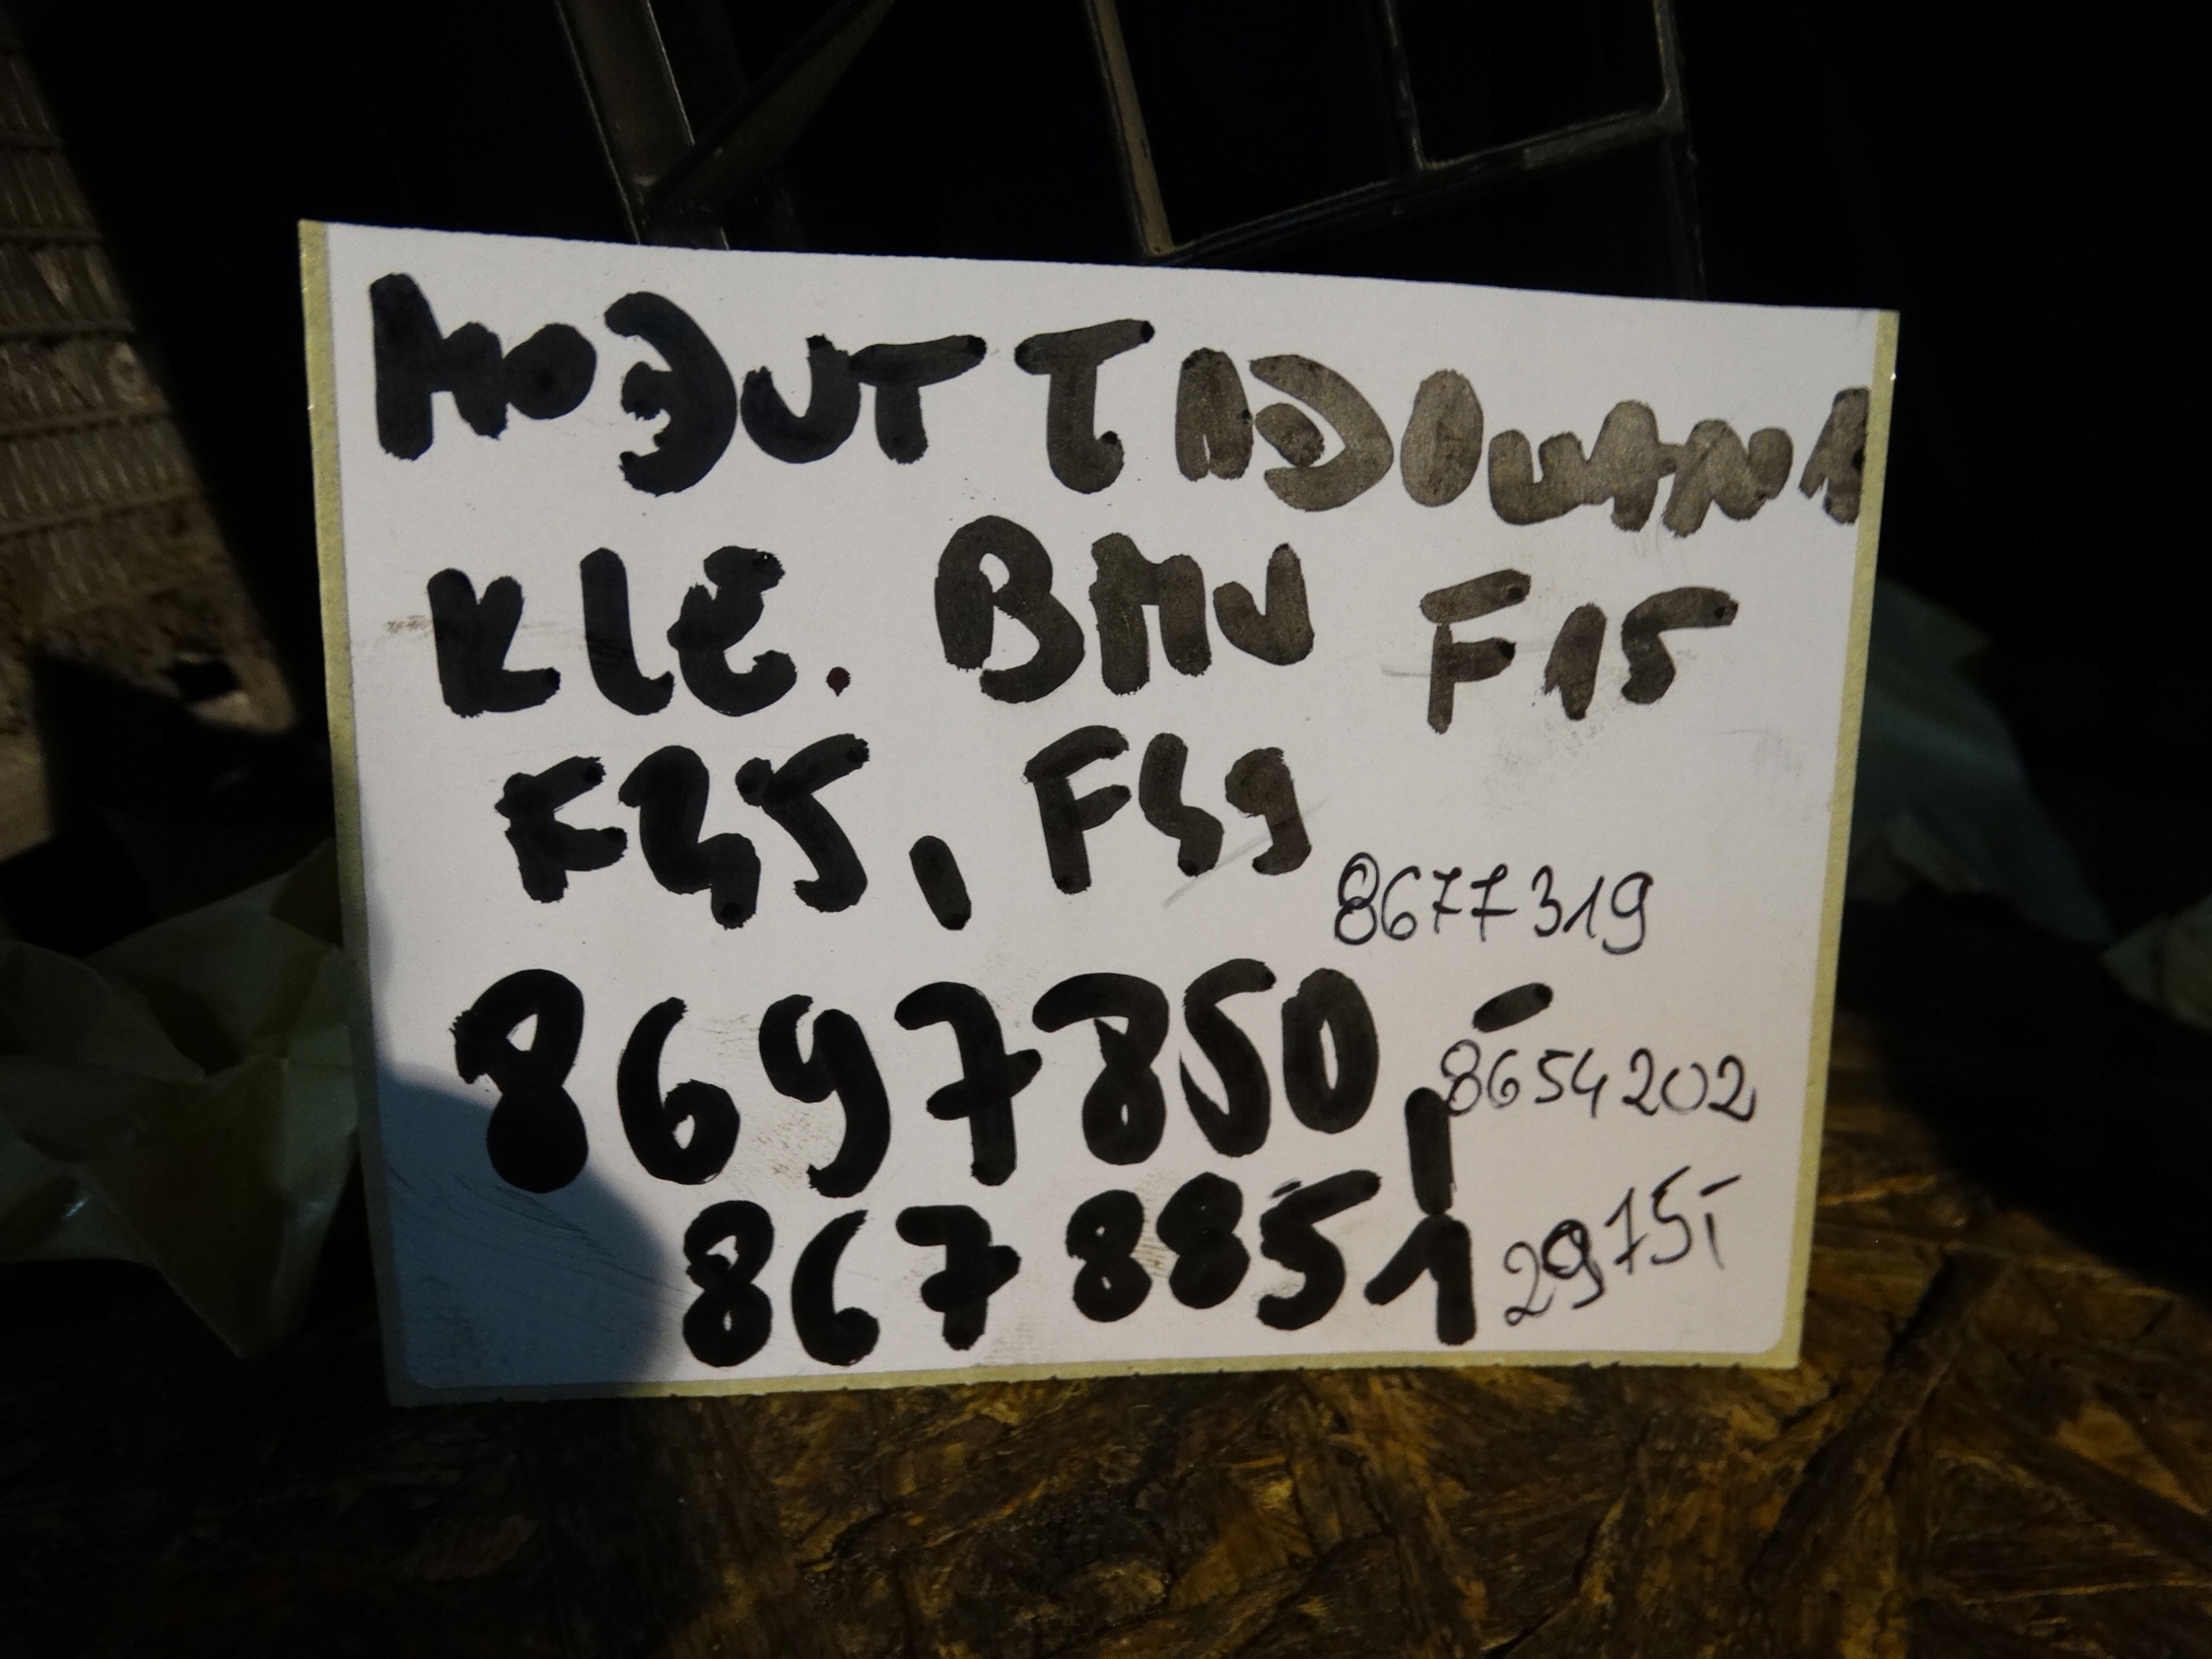 MODUŁ ŁADOWANIA
KLE. BMW F15
F25, F49
8677319
8697850, -
8654202
8678851
2975